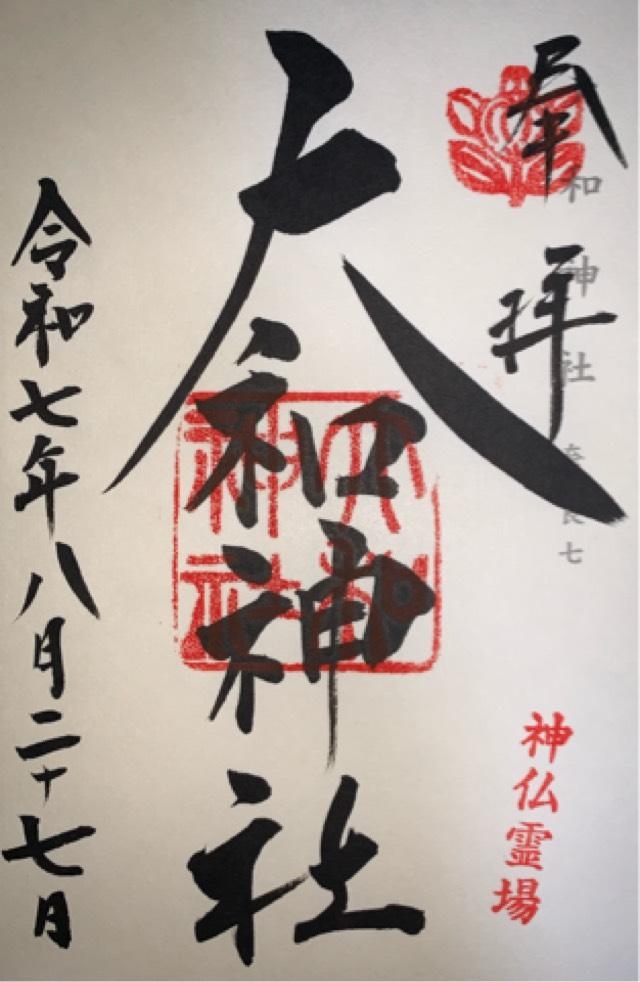 奉拝
和神社 奈良七
神仏霊場
大和神社
大和神社
令和七年八月二十七日